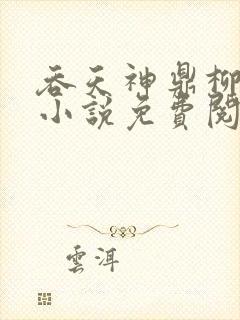 吞天神鼎柳
小說免費閱
雲洱